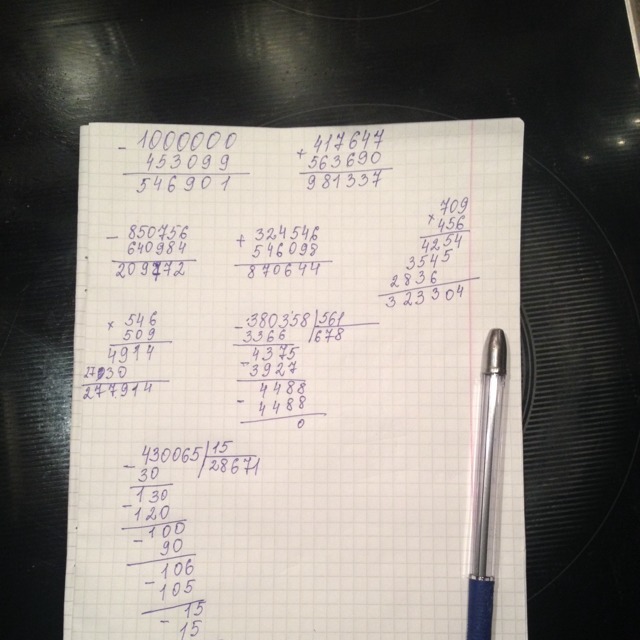 - 1000000
453099
546901
+ 417647
563690
981337
- 850756
640984
209772
+ 324546
546098
870644
× 709
456
4254
3545
2836
323304
× 546
509
4914
2730
277914
- 380358 | 561
3366 | 678
4375
- 3927
4488
- 4488
0
- 430065 | 15
30 | 28671
130
- 120
100
- 90
106
- 105
15
- 15